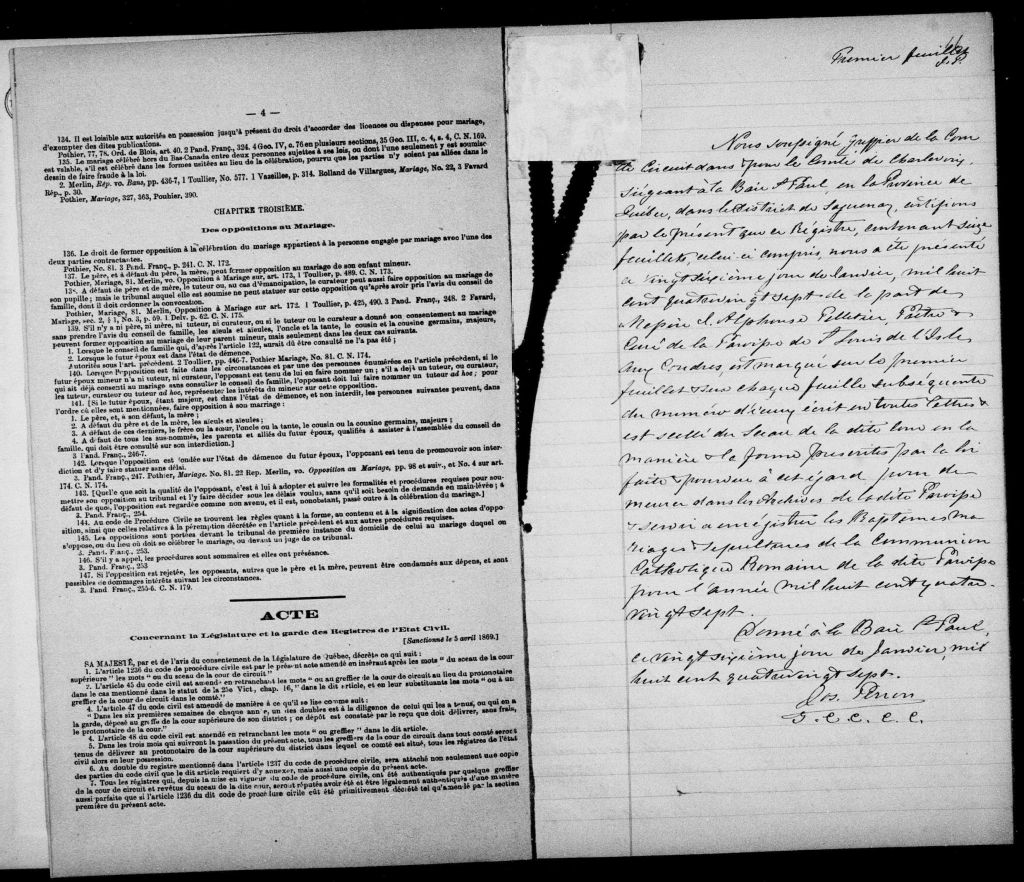 — 4 —
134. Il est loisible aux autorités en possession jusqu'à présent du droit d'accorder des licences ou dispenses pour mariage,
d'exempter des dites publications.
Pothier, 77, 78. Ord. de Blois, art. 40. 2 Pand. Franç., 324. 4 Geo. IV, c. 76 en plusieurs sections, 35 Geo. III, c. 4, s. 4, C. N. 169.
135. Le mariage célébré hors du Bas-Canada entre deux personnes sujettes à ses lois, ou dont l'une seulement y est soumise
est valable, s'il est célébré dans les formes usitées au lieu de la célébration, pourvu que les parties n'y soient pas allées dans le
dessin de faire fraude à la loi.
2. Merlin, Rép. vo. Bans, pp. 436-7, 1 Toullier, No. 577. 1 Vazeilles, p. 314. Rolland de Villargues, Mariage, No. 22, 3 Favard
Rép., p. 30.
Pothier, Mariage, 327, 363, Pouhier, 390.
CHAPITRE TROISIÈME.
Des oppositions au Mariage.
136. Le droit de former opposition à la célébration du mariage appartient à la personne engagée par mariage avec l'une des
deux parties contractantes.
Pothier, No. 81. 3 Pand. Franç., p. 241. C. N. 172.
137. Le père, et à défaut du père, la mère, peut former opposition au mariage de son enfant mineur.
Pothier, Mariage, 81. Merlin, vo. Opposition à Mariage, sur art. 173, 1 Toullier, p. 489. C. N. 173.
138. A défaut de père et de mère, le tuteur ou, au cas d'émancipation, le curateur peut aussi faire opposition au mariage de
son pupille; mais le tribunal auquel elle est soumise ne peut statuer sur cette opposition qu'après avoir pris l'avis du conseil de
famille, dont il doit ordonner la convocation.
Pothier, Mariage, 81. Merlin, Opposition à Mariage sur art. 172. 1 Toullier, p. 425, 490. 3 Pand. Franç., 248. 2 Favard,
Mariage, sec. 2, § 1, No. 3, p. 59. 1 Delv. p. 62. C. N. 175.
139. S'il n'y a ni père, ni mère, ni tuteur, ni curateur, ou si le tuteur ou le curateur a donné son consentement au mariage
sans prendre l'avis du conseil de famille, les aïeuls et aïeules, l'oncle et la tante, le cousin et la cousine germains, majeurs,
peuvent former opposition au mariage de leur parent mineur, mais seulement dans les deux cas suivants.
1. Lorsque le conseil de famille qui, d'après l'article 122, aurait dû être consulté ne l'a pas été ;
2. Lorsque le futur époux est dans l'état de démence.
Autorités sous l'art. précédent. 2 Toullier, pp. 446-7. Pothier Mariage, No. 81. C. N. 174.
140. Lorsque l'opposition est faite dans les circonstances et par une des personnes énumérées en l'article précédent, si le
futur époux mineur n'a ni tuteur, ni curateur, l'opposant est tenu de lui en faire nommer un ; s'il a déjà un tuteur, ou curateur,
qui ait déjà consenti au mariage sans consulter le conseil de famille, l'opposant doit lui faire nommer un tuteur ad hoc ; pour
les tuteur, curateur ou tuteur ad hoc, représenter les intérêts du mineur sur cette opposition.
141. [Si le futur époux, étant majeur, est dans l'état de démence, et non interdit, les personnes suivantes peuvent, dans
l'ordre où elles sont mentionnées, faire opposition à son mariage :
1. Le père, et, à son défaut, la mère ;
2. A défaut du père et de la mère, les aïeuls et aïeules ;
3. A défaut de ces derniers, le frère ou la sœur, l'oncle ou la tante, le cousin ou la cousine germains, majeurs ;
4. A défaut de tous les sus-nommés, les parents et alliés du futur époux, qualifiés à assister à l'assemblée du conseil de
famille, qui doit être consulté sur son interdiction.]
3 Pand. Franç., 246-7.
142. Lorsque l'opposition est fondée sur l'état de démence du futur époux, l'opposant est tenu de promouvoir son inter-
diction et d'y faire statuer sans délai.
3. Pand. Franç., 247. Pothier, Mariage. No. 81. 22 Rep. Merlin, vo. Opposition au Mariage, pp. 98 et suiv., et No. 4 sur art.
174. C. N. 174.
143. [Quel que soit la qualité de l'opposant, c'est à lui à adopter et suivre les formalités et procédures requises pour sou-
mettre son opposition au tribunal et l'y faire décider sous les délais voulus, sans qu'il soit besoin de demande en main-levée ; à
défaut de quoi, l'opposition est regardée comme non avenu, et il est, nonobstant, passé outre à la célébration du mariage.]
3. Pand. Franç., 254.
144. Au code de Procédure Civile se trouvent les règles quant à la forme, au contenu et à la signification des actes d'oppo-
sition, ainsi que celles relatives à la péremption décrétée en l'article précédent et aux autres procédures requises.
145. Les oppositions sont portées devant le tribunal de première instance du domicile de celui au mariage duquel on
s'oppose, ou du lieu où doit se célébrer le mariage, ou devant un juge de ce tribunal.
3. Pand. Franç., 253.
146. S'il y a appel, les procédures sont sommaires et elles ont préséance.
3. Pand. Franç., 253
147. Si l'opposition est rejetée, les opposants, autres que le père et la mère, peuvent être condamnés aux dépens, et sont
passibles de dommages intérêts suivant les circonstances.
3. Pand. Franç., 255-6. C. N. 179.
ACTE
Concernant la Législature et la garde des Registres de l'Etat Civil.
[Sanctionné le 5 avril 1869.]
SA MAJESTÉ, par et de l'avis du consentement de la Législature de Québec, décrète ce qui suit :
1. L'article 1236 du code de procédure civile est par le présent acte amendé en insérant après les mots " du sceau de la cour
supérieure " les mots " ou du sceau de la cour de circuit."
2. L'article 45 du code civil est amendé en retranchant les mots " ou au greffier de la cour de circuit au lieu du protonotaire
dans le cas mentionné dans le statut de la 25e Vict., chap. 16," dans le dit article, et en leur substituants les mots " ou à un
greffier de la cour de circuit dans le comté."
4. L'article 47 du code civil est amendé de manière à ce qu'il se lise comme suit :
" Dans les six premières semaines de chaque année, un des doubles est à la diligence de celui qui les a tenus, ou qui en a
la garde, déposé au greffe de la cour supérieure de son district ; ce dépôt est constaté par le reçu que doit délivrer, sans frais,
le protonotaire de la cour."
4. L'article 48 du code civil est amendé en retranchant les mots " ou greffier " dans le dit article.
5. Dans les trois mois qui suivront la passation du présent acte, tous les greffiers de la cour de circuit dans tout comté seront
tenus de délivrer au protonotaire de la cour supérieure du district dans lequel ce comté est situé, tous les régistres de l'état
civil alors en leur possession.
6. Au double du registre mentionné dans l'article 1237 du code de procédure civile, sera attaché non seulement une copie
des parties du code civil que le dit article requiert d'y annexer, mais aussi une copie du présent acte.
7. Tous les régistres qui, depuis la mise en vigueur du code de procédure civile, ont été authentiqués par quelque greffier
de la cour de circuit et revêtus du sceau de la dite cour, seront réputés avoir été et être légalement authentiqués d'une manière
aussi parfaite que si l'article 1236 du dit code de procédure civile eût été primitivement décrété tel qu'amendé par la section
première du présent acte.
Premier feuillet
J.P.
Nous soussigné Greffier de la Cour
de Circuit dans & pour le Comté de Charlevoix,
Siégeant à la Baie St Paul, en la Province de
Québec, dans le District de Saguenay, certifions
par le présent que ce Régistre, contenant seize
feuillets, celui-ci compris, nous a été présenté
ce vingt sixième jour de Janvier, mil huit
cent quatrevingt sept de la part de
Messire A. Alphonse Pelletier, Prêtre &
Curé de la Paroisse de St Louis de l'Isle
Aux Coudres, est marqué sur le premier
feuillet & sur chaque feuille subséquente
du numéro d'iceux écrit en toutes lettres &
est scellé du Sceau de la dite Cour en la
manière & la forme prescrites par la loi
faite & pourvue à cet égard, pour de
meurer dans les Archives de la dite Paroisse
& servir à enrégistrer les Baptêmes, ma
riages & sépultures de la Communion
Catholique Romaine de la dite Paroisse
pour l'année mil huit cent quatre-
vingt sept.
Donné à la Baie St Paul,
ce vingt sixième jour de Janvier, mil
huit cent quatrevingt sept.
Jos. Perron
G. C. C. C. C.